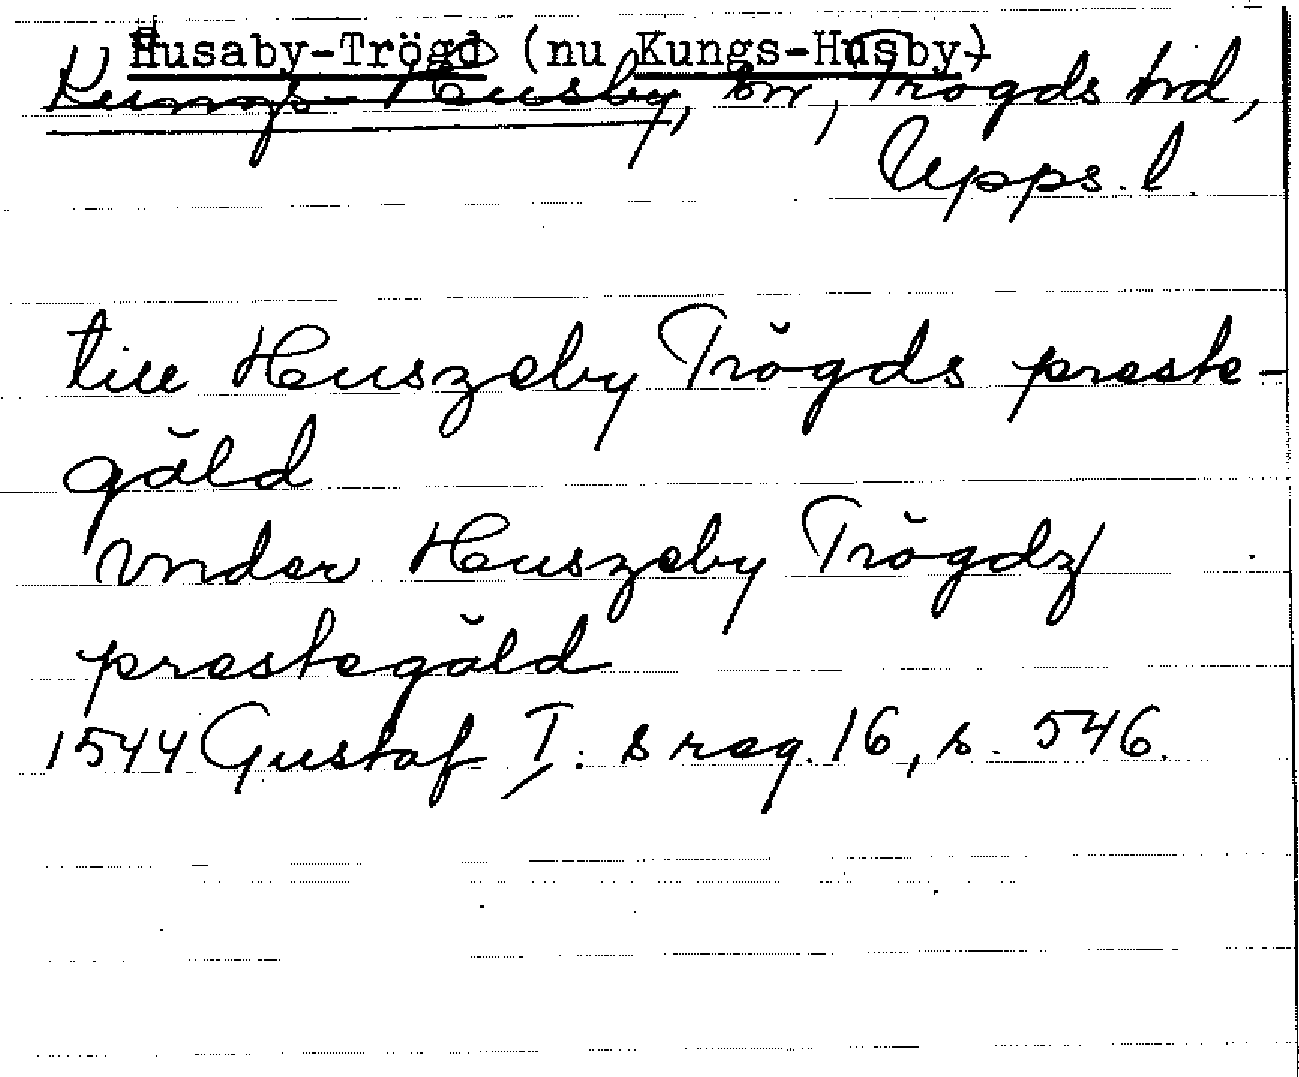 Husaby-Trögd (nu Kungs-Husby)
Kungs-Husby, sn, Trögds hd,
Upps. l.
till Huszeby Trögds preste-
gäld
Vnder Huszeby Trögdz
prestegäld
1544 Gustaf I:s reg. 16, s. 546.